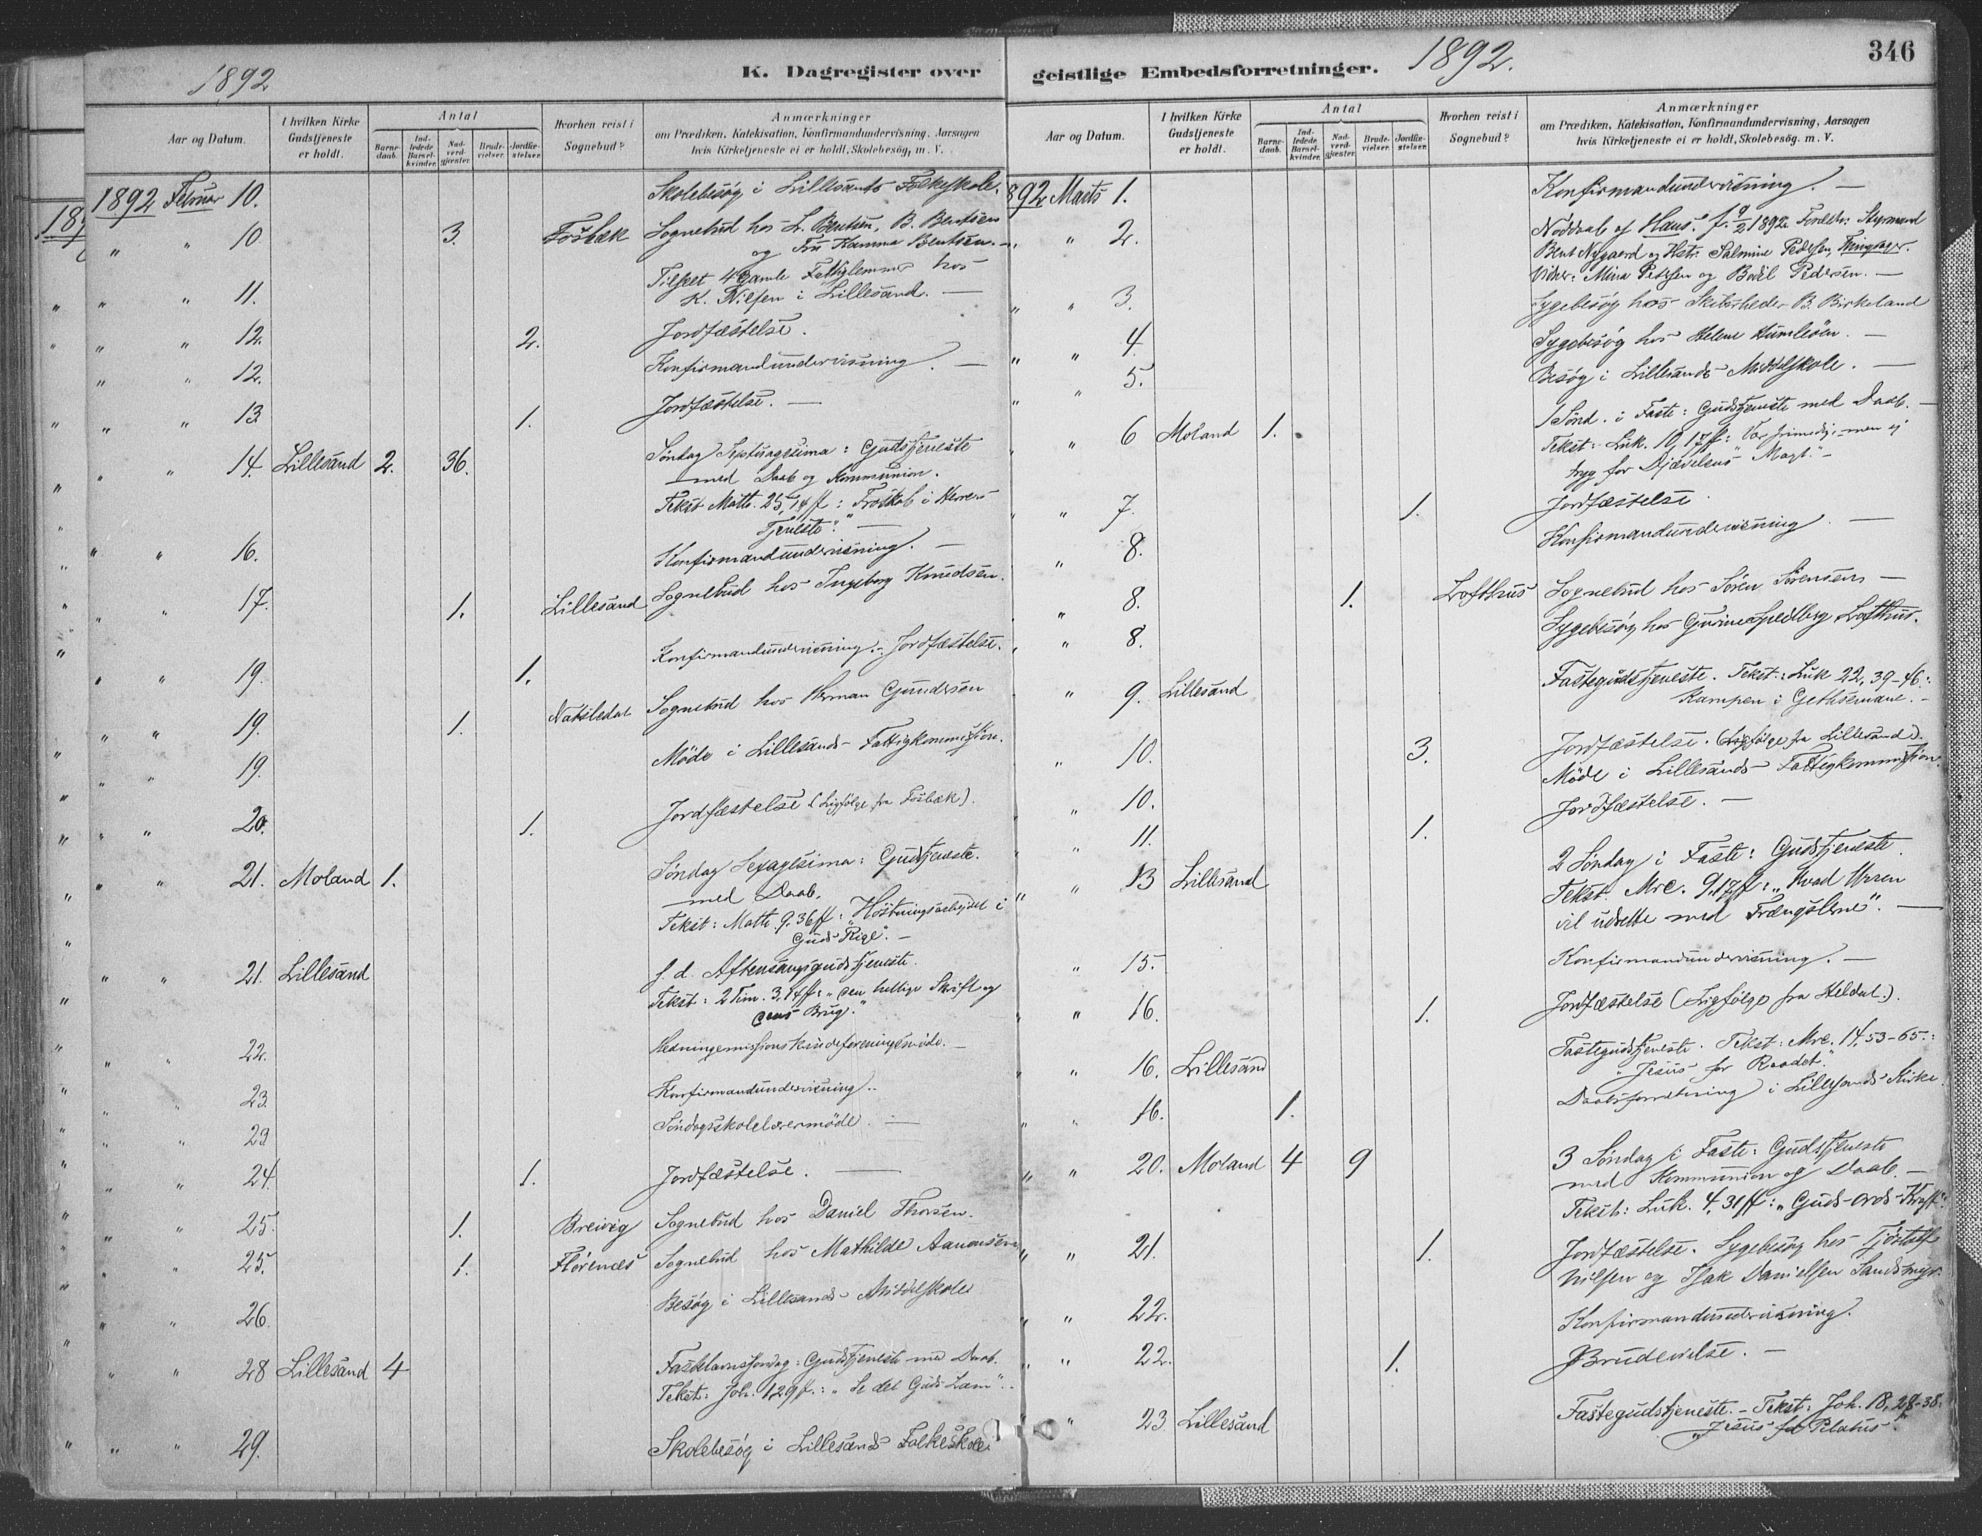 1892
K. Dagregister over
Aar og Datum.
I hvilken Kirke Gudstjeneste er holdt.
Antal
Barnedaab.
Indledede Barselkvinder.
Nadverdgjester.
Brudevielser.
Jordfæstelser.
Hvorhen reist i Sognebud?
Anmærkninger
om Prædiken, Katekisation, Konfirmandundervisning, Aarsagen
hvis Kirketjeneste ei er holdt, Skolebesøg, m. V.
1892 Februar 10. Skolebesøg i Lillesands Folkeskole.
" " 10 3. Fosbæk Sognebud hos L. Bentsen, B. Bentsen
og Fru Hamma Bentsen. —
" " 11. Tilseet 4 Gamle Fattiglemmer hos
K. Nilsen i Lillesand. —
" " 12. 2. Jordfæstelse.
" " 12. Konfirmandundervisning. —
" " 13 1. Jordfæstelse. —
" " 14. Lillesand 2. 36. Søndag Septuagesima: Gudstjeneste
med Daab og Kommunion.
Tekst Matth. 25, 14ff: "Troskab i Herrens
Tjeneste". —
" " 16. Konfirmandundervisning. —
" " 17. 1. Lillesand Sognebud hos Ingeborg Knudsen.
" " 19. 1. Konfirmandundervisning. - Jordfæstelse.
" " 19. 1. Sognebud hos Herman Gundersen
" " 19. Møde i Lillesands Fattigkommission.
" " 20. 1. Jordfæstelse (Ligfølge fra Fosbæk).
" " 21. Moland 1. Søndag Sexagesima: Gudstjeneste.
med Daab.
Tekst: Matth. 9, 36ff: "Høstningsarbeidet i
Guds Rige". —
" " 21. Lillesand s. d. Aftensangsgudstjeneste.
Tekst: 2 Tim. 3, 14ff: "Den hellige Skrift og
dens Brug."
" " 22. Hedningemissionskvindeforeningsmøde. —
" " 23. Konfirmandundervisning..
" " 23 Søndagsskolelærermøde. —
" " 24. 1. Jordfæstelse. —
" " 25. 1. Breivig Sognebud hos Daniel Thorsen.
" " 25. 1. Flørenæs Sognebud hos Mathilde Aanonsen
" " 26. Besøg i Lillesands Middelskole
" " 28 Lillesand 4 Fastelavnssøndag: Gudstjeneste med Daab.
Tekst: Joh. 1, 29ff.: "Se det Guds Lam".
" " 29. Skolebesøg i Lillesands Folkeskole
geistlige Embedsforretninger.
1892.
346
Aar og Datum.
I hvilken Kirke Gudstjeneste er holdt.
Antal
Barnedaab.
Indledede Barselkvinder.
Nadverdgjester.
Brudevielser.
Jordfæstelser.
Hvorhen reist i Sognebud?
Anmærkninger
om Prædiken, Katekisation, Konfirmandundervisning, Aarsagen
hvis Kirketjeneste ei er holdt, Skolebesøg. m. V.
892 Marts 1. Konfirmandundervisning. —
" 2. Nøddaab af Hans f. 9/2 1892. Forældr: Styrmand
Bent Nygaard og Hstr. Salmine Pedersen,
Vidner: Mina Pedersen og Bodil Pedersen. —
" " 3. Sygebesøg hos Skibsrheder B. Birkeland
" " 4. Sygebesøg hos Helene Humleøen. —
" " 5. Besøg i Lillesands Middelskole. —
" " 6 Moland 1. 1 Sønd. i Faste: Gudstjeneste med Daab. —
Tekst: Luk. 10, 17ff: "Vær frimodig, men ej
tryg for Djævelens Magt". —
" " 7. 1. Jordfæstelse.
" 8. Konfirmandundervisning. —
" 8. 1. Lofthus Sognebud hos Søren Sørensen —
" " 8. Sygebesøg hos Gurine Lofthus.
" 9. Lillesand Fastegudstjeneste. Tekst: Luk 22, 39-46:
Kampen i Gethsemane. —
" 10. 3. Jordfæstelse. (Ligfølge fra Lillesand).
" 10. Møde i Lillesands Fattigkommission.
" 11. 1. Jordfæstelse. —
" " 13 Lillesand 2 Søndag i Faste: Gudstjeneste.
Tekst. Mrc. 9, 17ff: "Hvad Herren
vil udrette med Trængslerne". —
" 15. Konfirmandundervisning. —
" " 16. 1. Jordfæstelse (Ligfølge fra Heldal.).
" " 16. Lillesand Fastegudstjeneste. Tekst: Mrc. 14, 53-65.:
"Jesus for Raadet".
" " 16. 1. Daabsforretning i Lillesands Kirke.
" " 20. Moland 4 9 3 Søndag i Faste: Gudstjeneste
med Kommunion og Daab. —
Tekst: Luk. 4, 31ff: "Guds-Ords-Kraft".
" " 21. 1. Jordfæstelse. Sygebesøg hos
Nielsen og Isak Danielsen Sandsmyr.
" " 22. Konfirmandundervisning.
" " 22. 1. Brudevielse. —
" 23 Lillesand Fastegudstjeneste. — Tekst: Joh. 18, 28-38.
"Jesus for Pilatus".